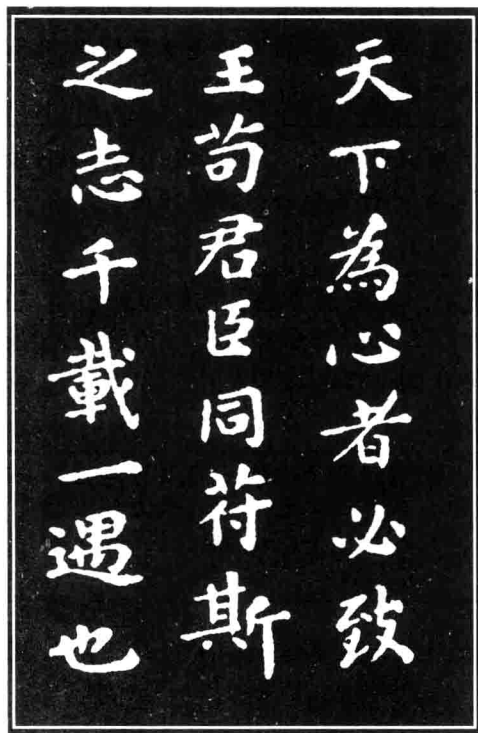 天下為心者必致
王苟君臣同苻斯
之志千載一遇也